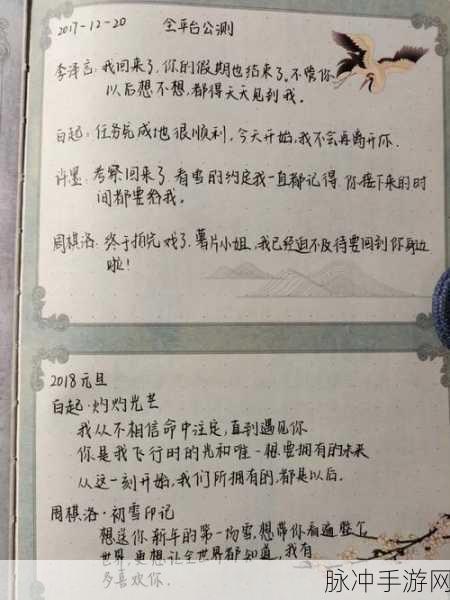 2017-12-20 全平台公测
李泽言:我回来了,你的假期也结束了。不管你
以后想不想,都得天天见到我。
白起:任务完成地很顺利,今天开始,我不会再离开你.
许墨:考察回来了.看雪的约定我一直都记得.你接下来的时
间都要给我。
周棋洛:终于拍完戏了,薯片小姐,我已经迫不及待要回到你身边
啦!
2018元旦
白起·灼灼光芒
我从不相信命中注定,直到遇见你
你是我飞行时的光和唯一想要拥有的未来
从这一刻开始,我们所拥有的,都是以后.
周棋洛·初雪印记
想送你新年的第一场雪,想带你看遍整个
世界,更想让全世界都知道,我有
多喜欢你.
脉冲手游网